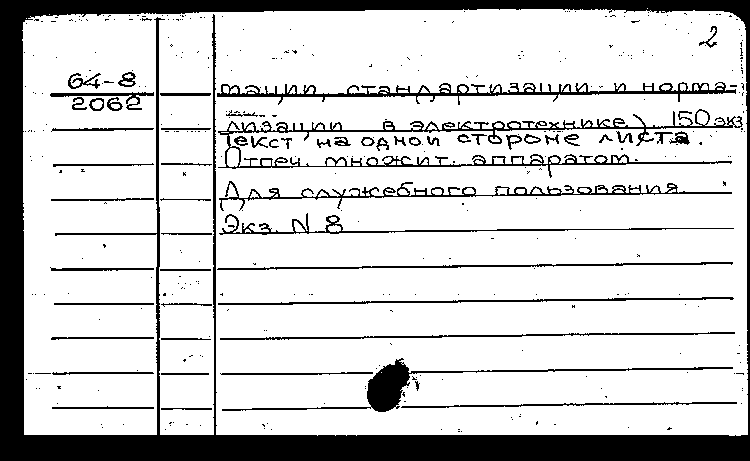 2
64-8
2062
тации, стандартизации и норма-
лизации в электротехнике). 150 экз
Текст на одной стороне листа.
Отпеч. множит. аппаратом.
Для служебного пользования.
Экз. N 8